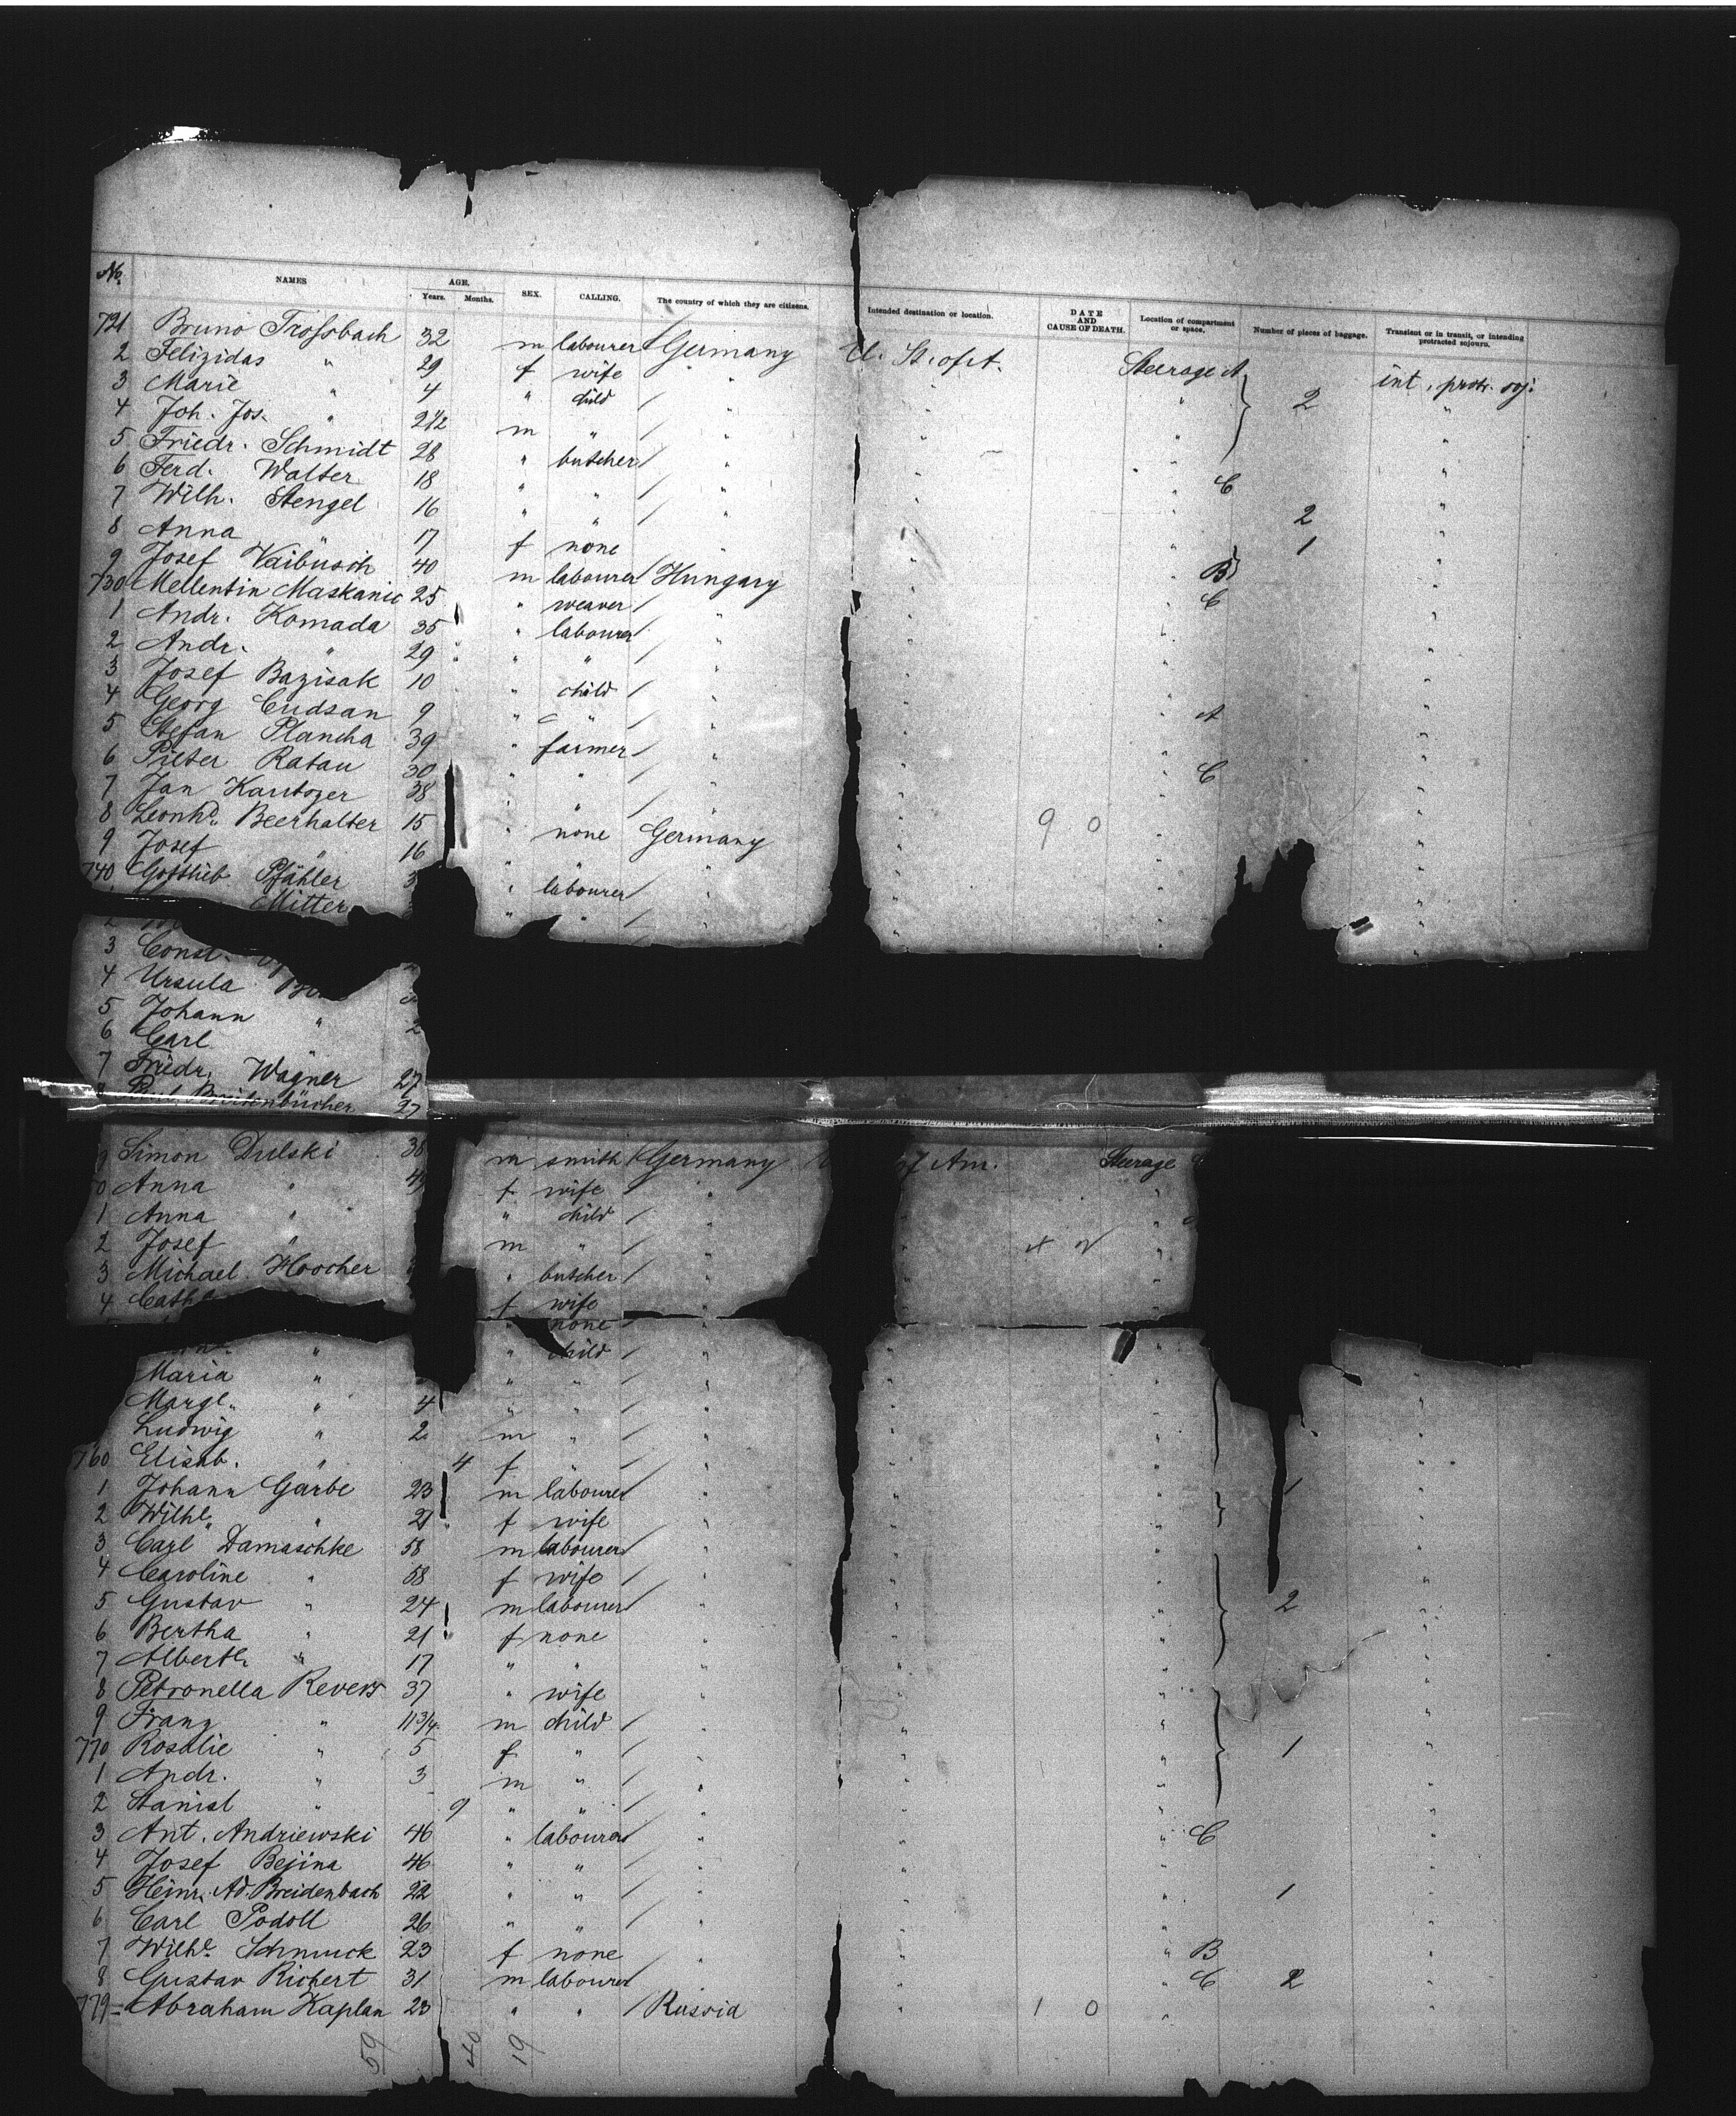 No. NAMES AGE. Years. Months. SEX. CALLING. The country of which they are citizens. Intended destination or location. DATE AND CAUSE OF DEATH. Location of compartment or space. Number of pieces of baggage. Transient or in transit, or intending protracted sojourn.
721 Bruno Trossbach 32 m labourer Germany U. St. of A. Steerage A int. protr. soj.
2 Felizidas " 29 f wife " " "
3 Marie " 4 " child / " " " 2 "
4 Joh. Jos. " 2 1/2 m " / " " " "
5 Friedr. Schmidt 28 " butcher / " " C "
6 Ferd. Walter 18 " " / " " "
7 Wilh. Stengel 16 " " / " " 2 "
8 Anna " 17 f none " " " 1 "
9 Josef 40 m labourer Hungary " " B "
730 Mellentin Maskanic 25 " weaver / " " " C "
1 Andr. Komada 35 " labourer / " " " "
2 Andr. " 29 " " / " " " "
3 Josef Bazisak 10 " child / " " " "
4 Georg Cudsan 9 " " / " " " A "
5 Stefan Plancha 39 " farmer / " " " "
6 Pieter Ratau 30 " " / " " " C "
7 Jan 38 " " / " " " "
8 Leonhd. Beerhalter 15 " none Germany " 9 0 " "
9 Josef " 16 " " " " " "
740 Gottlieb Pfähler " labourer / " " " "
Mitter " " / " " " "
2
3 Const.
4 Ursula
5 Johann " 2
6 Carl "
7 Friedr. Wagner 27
8 Breidenbücher 27
9 Simon Dulski 38 m smith / Germany of Am. Steerage
0 Anna " f wife / " " "
1 Anna " " child / " " "
2 Josef " m " / " " "
3 Michael Hoocher " butcher / " " "
4 Cath f wife " " "
none
" " child / " " " "
Maria " " " / " " " "
Margt. " 4 " " / " " " "
Ludwig " 2 m " / " " " "
760 Elisab. " 4 f " / " " " "
1 Johann Garbe 23 m labourer " " " 1 "
2 Wilhe. " 21 f wife " " " "
3 Carl Damaschke 58 m labourer " " " "
4 Caroline " 58 f wife / " " " "
5 Gustav " 24 m labourer " " " 2 "
6 Bertha " 21 f none " " " "
7 Alberth. " 17 " " " " " "
8 Petronella Revers 37 " wife " " " "
9 Franz " 11 3/4 m child / " " " "
770 Rosalie " 5 f " / " " " 1 "
1 Andr. " 3 m " / " " " "
2 Stanisl " 9 " " / " " " "
3 Ant. Andriewski 46 " labourer " " " C "
4 Josef Bejina 46 " " / " " " "
5 Heinr. Ad. Breidenbach 22 " " / " " " 1 "
6 Carl Podoll 26 " " / " " " "
7 Wilhe. Schmuck 23 f none " " " B "
8 Gustav Richert 31 m labourer " " " C 2 "
779 Abraham Kaplan 23 " " / Russia " 1 0 " "
59 40 19